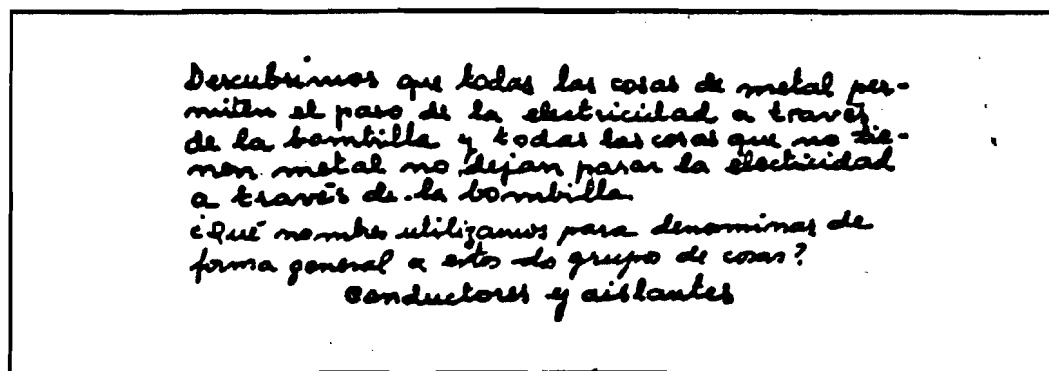 Descubrimos que todas las cosas de metal per-
miten el paso de la electricidad a través
de la bombilla y todas las cosas que no tie-
nen metal no dejan pasar la electricidad
a través de la bombilla.
¿Qué nombre utilizamos para denominar de
forma general a estos do grupo de cosas?
Conductores y aislantes